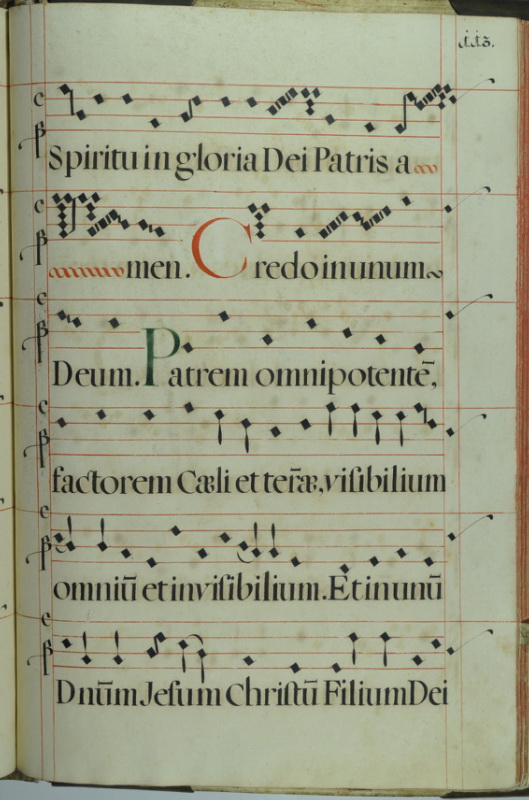 Spiritu in gloria Dei Patris a
men. Credo in unum
Deum. Patrem omnipotentē,
factorem Cæli et ter̄æ, viſibilium
omniū et inviſibilium. Et in unū
Dn̄um Jeſum Chriſtū Filium Dei